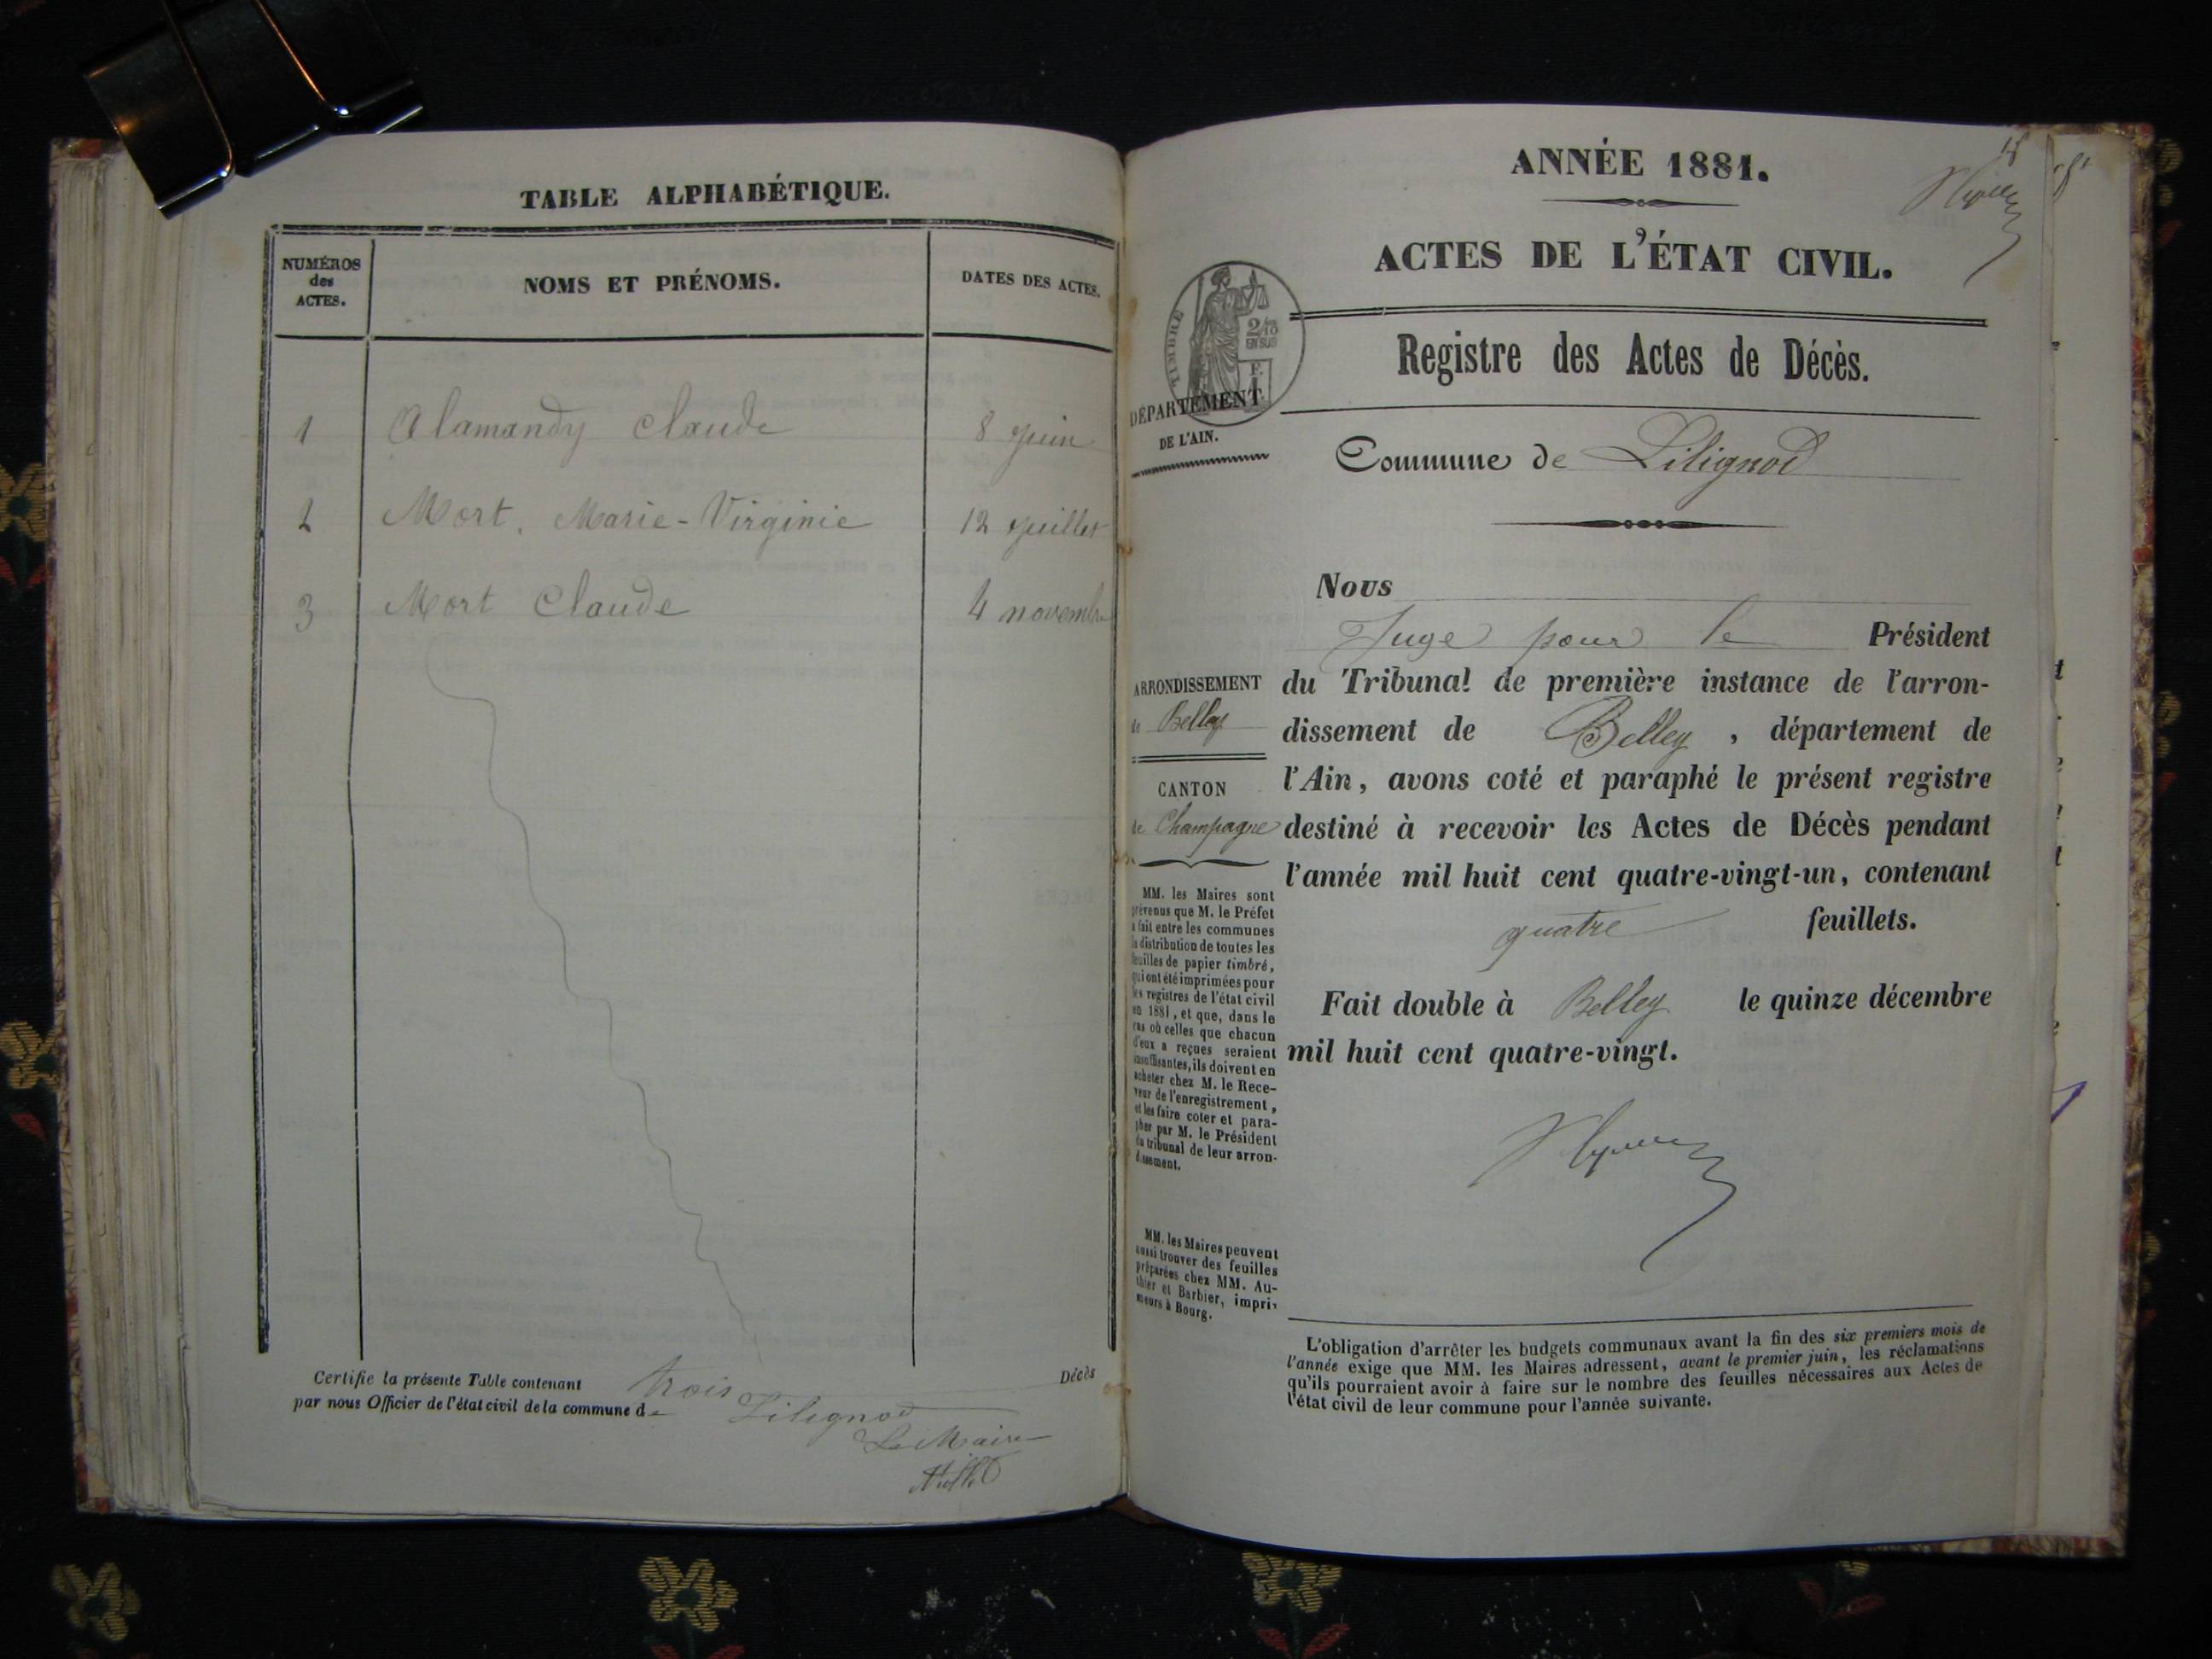 TABLE ALPHABÉTIQUE.
NUMÉROS
des
ACTES.
NOMS ET PRÉNOMS.
DATES DES ACTES.
1 Alamandy Claude 8 juin
2 Mort, Marie-Virginie 12 juillet
3 Mort Claude 4 novembre
Certifie la présente Table contenant trois Décès
par nous Officier de l'état civil de la commune de Lilignod
Le Maire
ANNÉE 1881.
ACTES DE L'ÉTAT CIVIL.
TIMBRE
2/10
EN SUS
F.
1
Registre des Actes de Décès.
DÉPARTEMENT
DE L'AIN.
Commune de Lilignod
Nous
Juge pour le Président
du Tribunal de première instance de l'arron-
dissement de Belley, département de
l'Ain, avons coté et paraphé le présent registre
destiné à recevoir les Actes de Décès pendant
l'année mil huit cent quatre-vingt-un, contenant
quatre feuillets.
Fait double à Belley le quinze décembre
mil huit cent quatre-vingt.
ARRONDISSEMENT
de Belley
CANTON
de Champagne
MM. les Maires sont
prévenus que M. le Préfet
a fait entre les communes
la distribution de toutes les
feuilles de papier timbré,
qui ont été imprimées pour
les registres de l'état civil
en 1881, et que, dans le
cas où celles que chacun
d'eux a reçues seraient
insuffisantes, ils doivent en
acheter chez M. le Rece-
veur de l'enregistrement,
et les faire coter et para-
pher par M. le Président
du tribunal de leur arron-
dissement.
MM. les Maires peuvent
aussi trouver des feuilles
préparées chez MM. Au-
thier et Barbier, impri-
meurs à Bourg.
L'obligation d'arrêter les budgets communaux avant la fin des six premiers mois de
l'année exige que MM. les Maires adressent, avant le premier juin, les réclamations
qu'ils pourraient avoir à faire sur le nombre des feuilles nécessaires aux Actes de
l'état civil de leur commune pour l'année suivante.